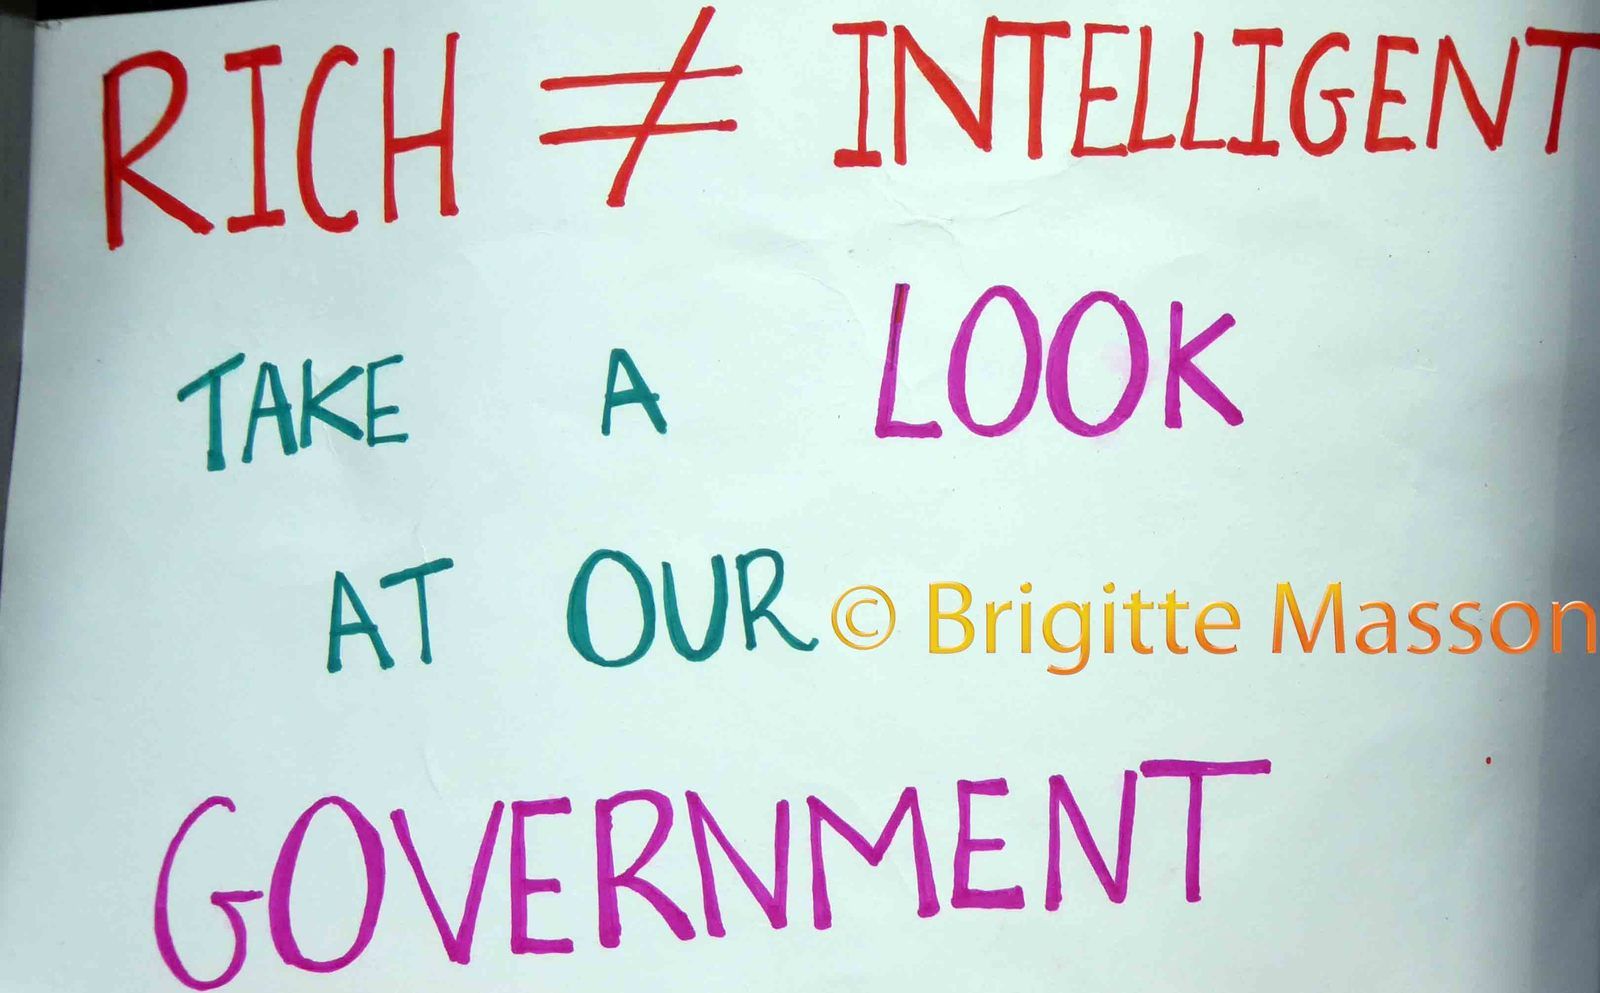 RICH ≠ INTELLIGENT
TAKE A LOOK
AT OUR
© Brigitte Masson
GOVERNMENT